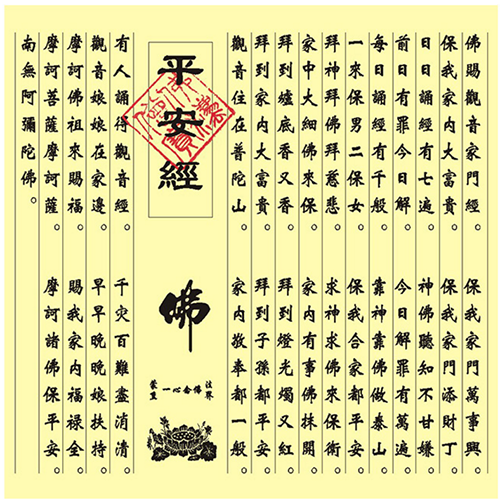 佛賜觀音家門經。保我家門萬事興。
保我家內大富貴。保我家門添財丁。
日日誦經有七遍。神佛聽知不甘嫌。
前日有罪今日解。今日解罪有萬遍。
每日誦經有千般。靠神靠佛做泰山。
一來保男二保女。保我合家都平安。
拜神拜佛拜慈悲。求神求佛來保衛。
家中大細佛來保。家內有事佛抹開。
拜到爐底香又香。拜到燈光燭又紅。
拜到家內大富貴。拜到子孫都平安。
觀音住在普陀山。家內敬奉都一般。
平安經
佛
有人誦得觀音經。千災百難盡消清。
觀音娘娘在家邊。早早晚晚娘扶持。
摩訶佛祖來賜福。賜我家內福祿全。
摩訶菩薩摩訶薩。摩訶諸佛保平安。
南無阿彌陀佛。